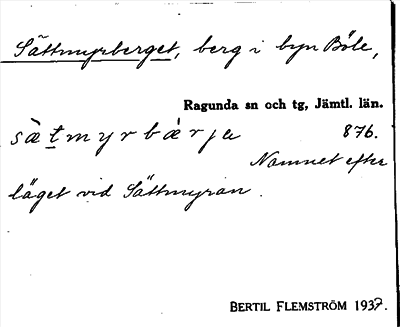 Sättmyrberget, berg i byn Böle,
Ragunda sn och tg, Jämtl. län.
sä̀t̲myrbæ̀rjα 876.
Namnet efter
läget vid Sättmyran.
BERTIL FLEMSTRÖM 1937.